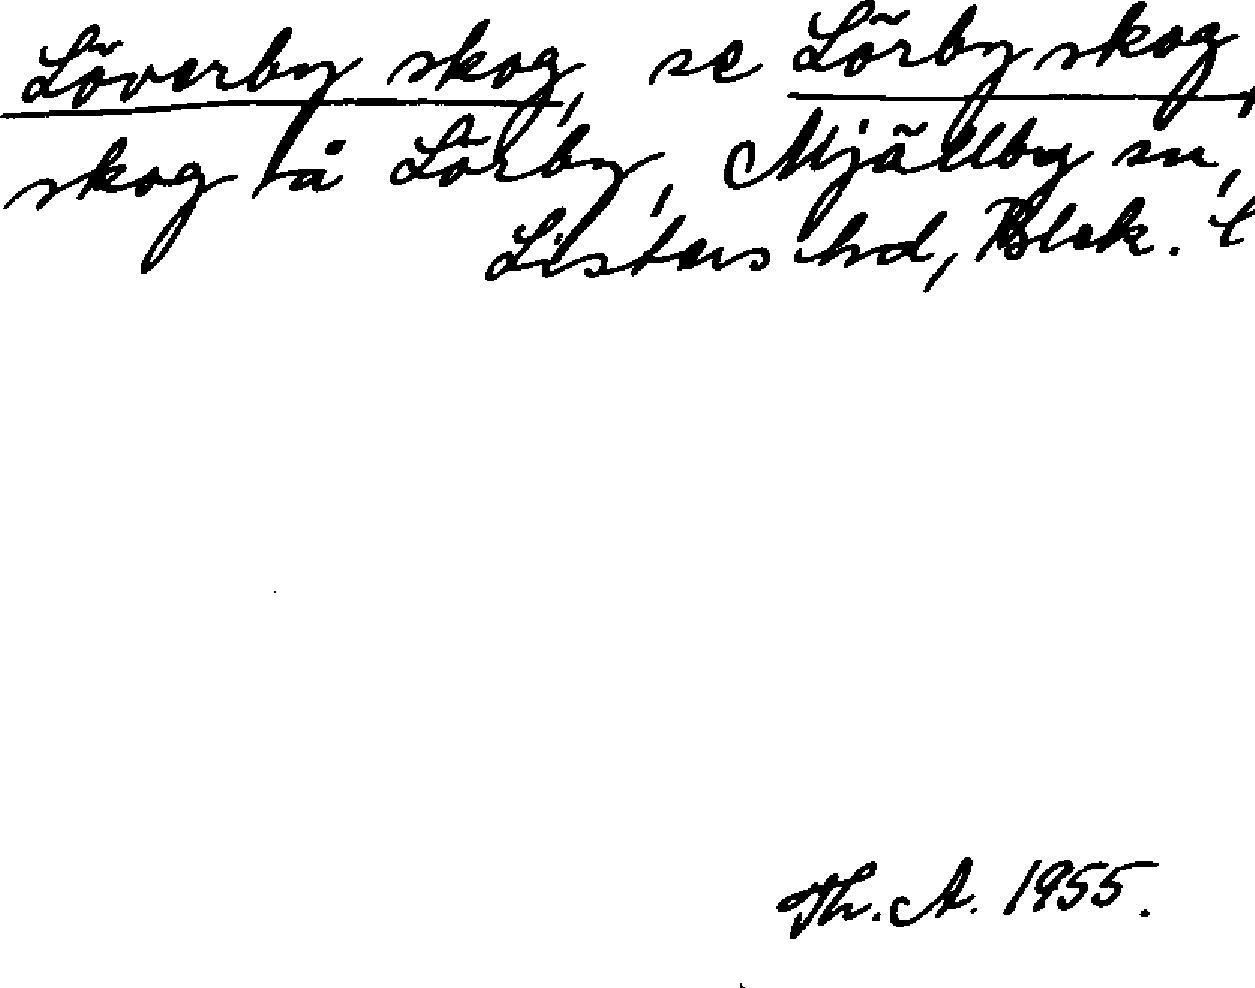 Löverby skog, se Lörby skog,
skog på Lörby, Mjällby sn,
Listers hd, Blek. l
Th. A. 1955.